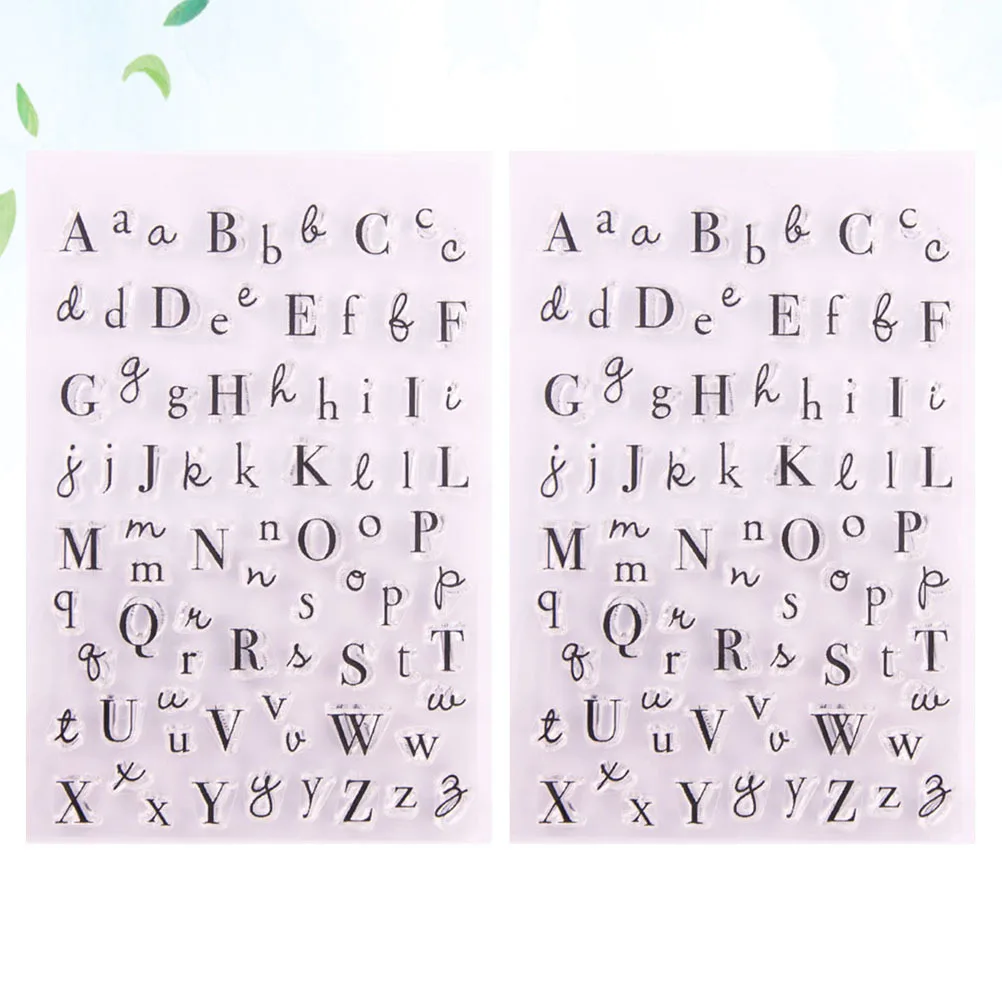 A a a B b b C c c
d d D e e E f f F
G g g H h h i I i
j j J k k K l l L
M m m N n n O o o P
q Q r s p p
q r R s S t T
t U u u V v v W w w
X x x Y y y Z z z
A a a B b b C c c
d d D e e E f f F
G g g H h h i I i
j j J k k K l l L
M m m N n n O o o P
q Q r s p p
q r R s S t T
t U u u V v v W w w
X x x Y y y Z z z